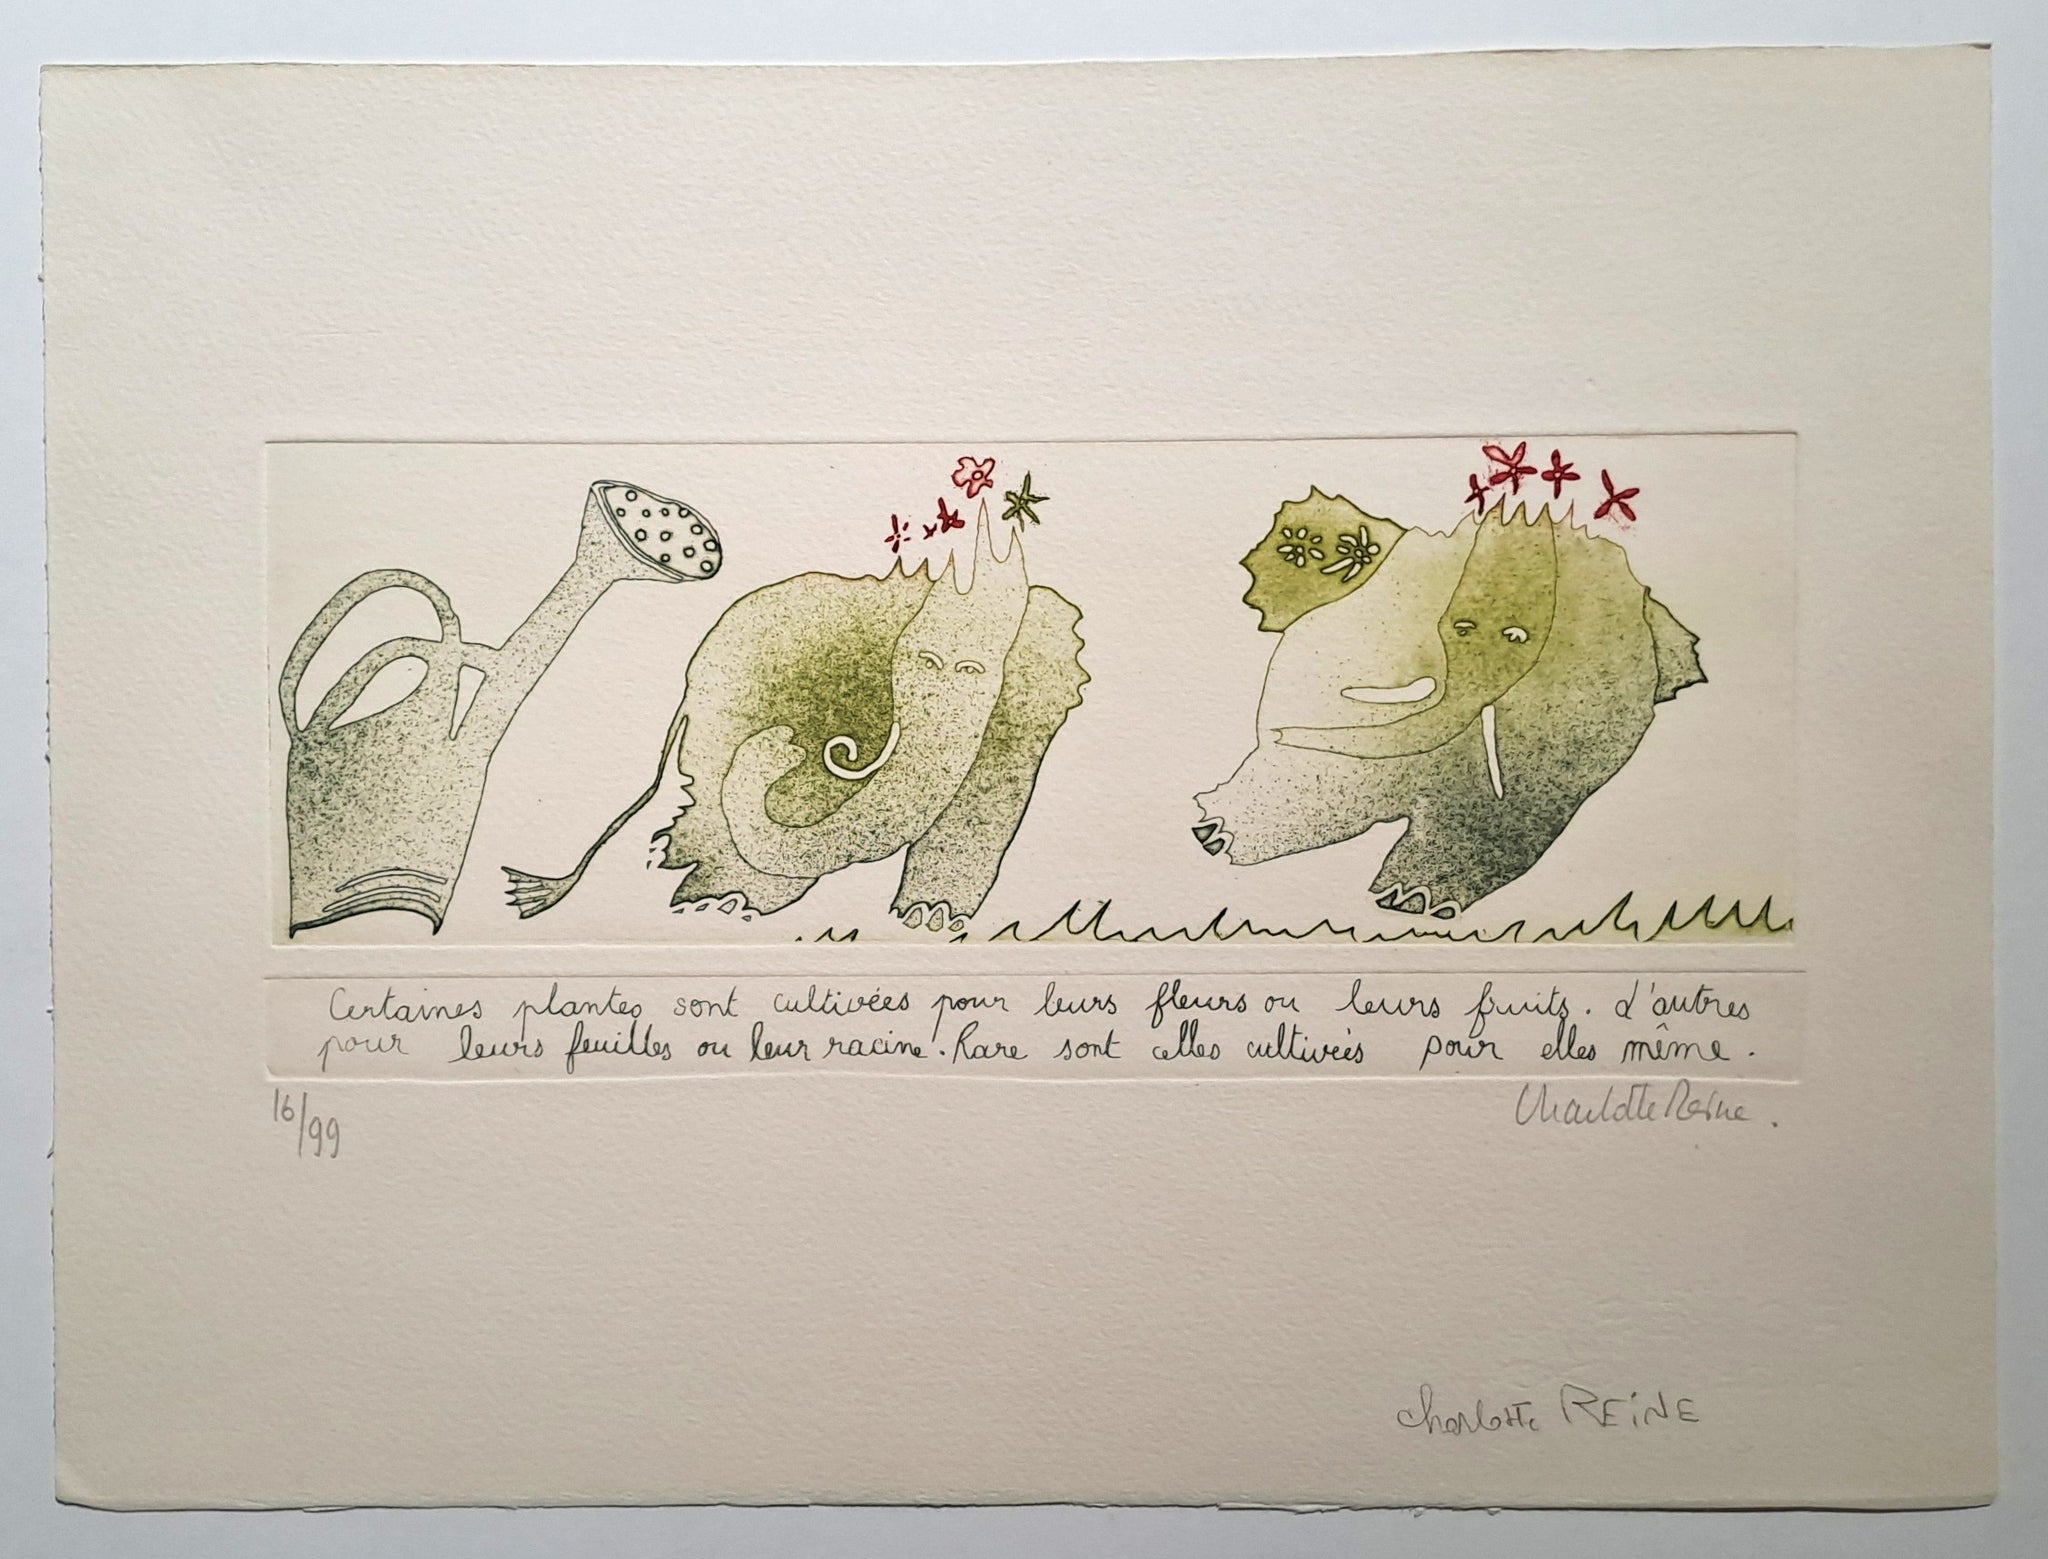 Certaines plantes sont cultivées pour leurs fleurs ou leurs fruits. d'autres
pour leurs feuilles ou leur racine. Rare sont celles cultivées pour elles même.
16/99
Charlotte Reine.
Charlotte REiNE